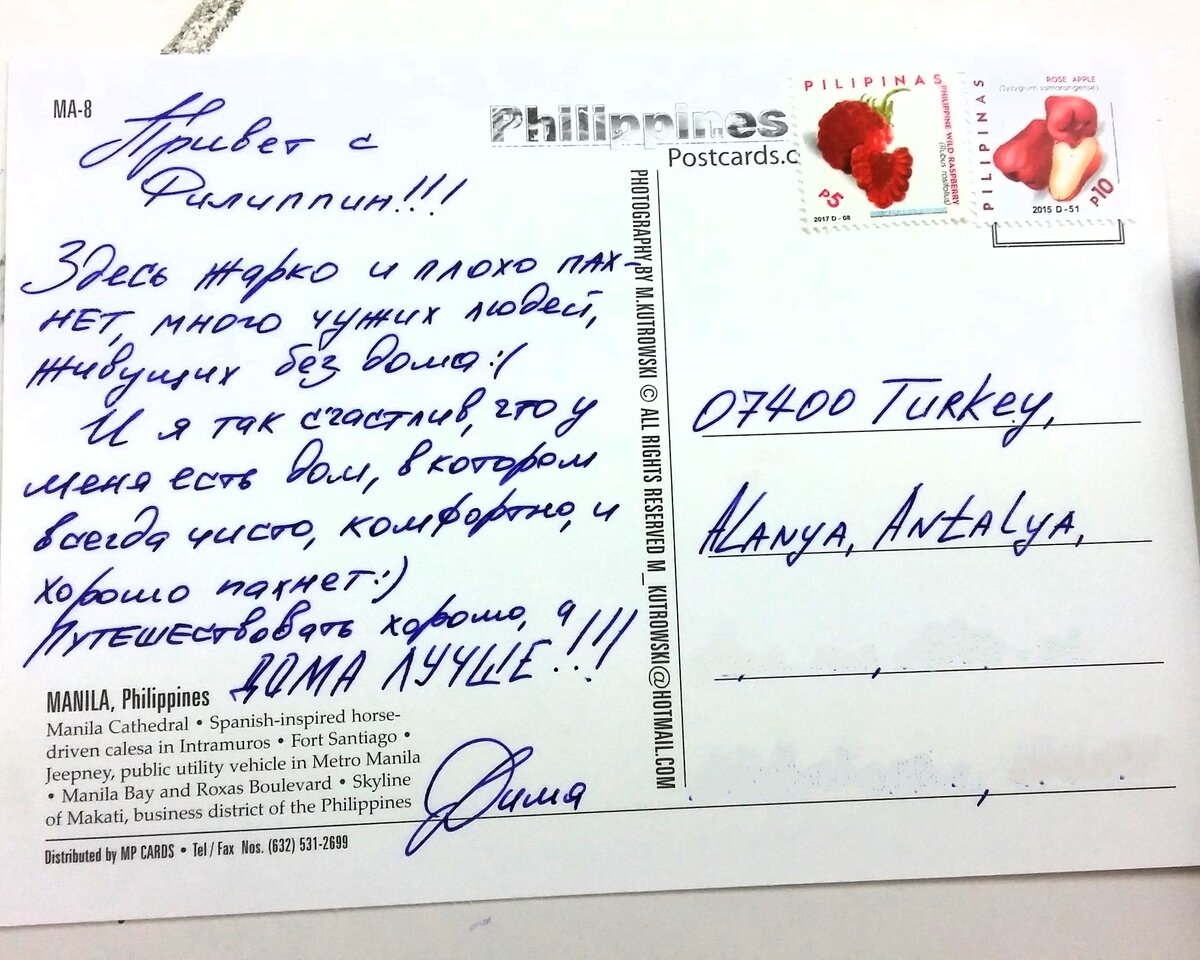 MA-8
Привет с
Филиппин!!!
Здесь жарко и плохо пах-
нет, много чужих людей,
живущих без дома:(
И я так счастлив, что у
меня есть дом, в котором
всегда чисто, комфортно, и
хорошо пахнет:)
Путешествовать хорошо, а
ДОМА ЛУЧШЕ!!!
Дима
MANILA, Philippines
Manila Cathedral • Spanish-inspired horse-
driven calesa in Intramuros • Fort Santiago •
Jeepney, public utility vehicle in Metro Manila
• Manila Bay and Roxas Boulevard • Skyline
of Makati, business district of the Philippines
Distributed by MP CARDS • Tel / Fax Nos. (632) 531-2699
PHOTOGRAPHY BY M.KUTROWSKI © ALL RIGHTS RESERVED M_KUTROWSKI@HOTMAIL.COM
Philippines
Postcards.c
PILIPINAS
PHILIPPINE WILD RASPBERRY
(Rubus rosifolius)
P5
2017 D - 08
PILIPINAS
ROSE APPLE
(Syzygium samarangense)
P10
2015 D - 51
07400 Turkey,
Alanya, Antalya,